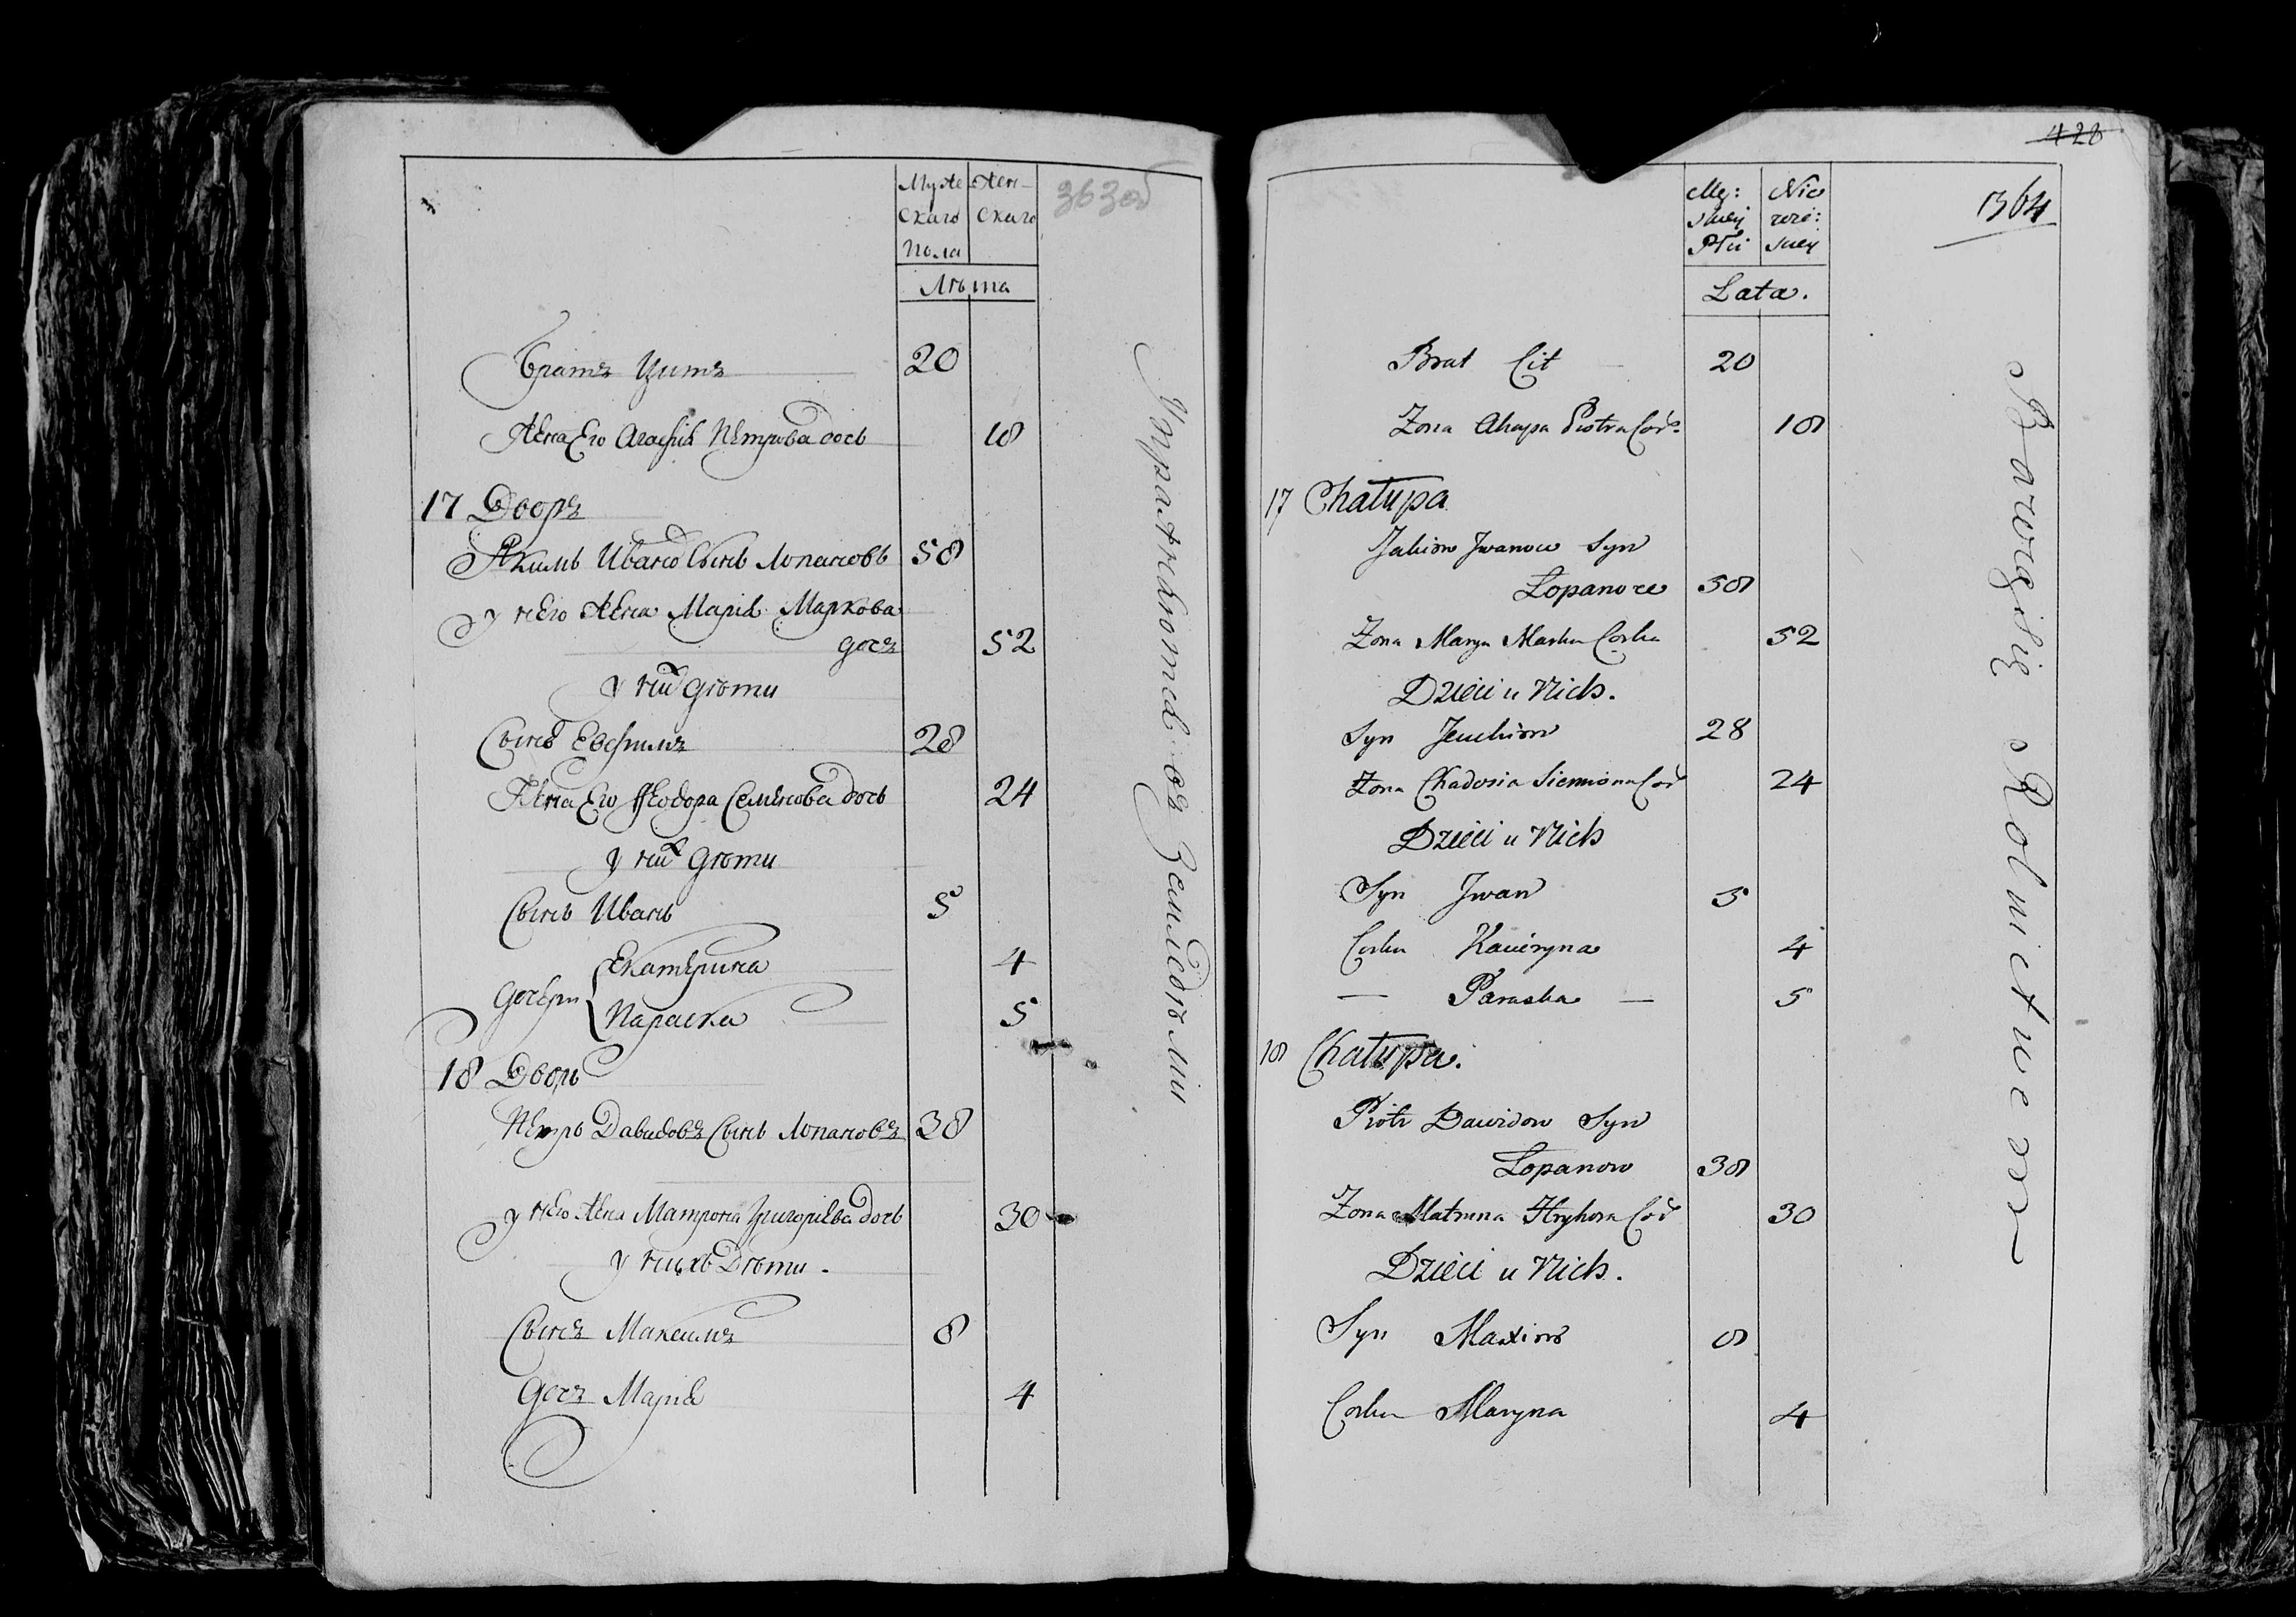 363об
Муже Жен-
скаго скаго
пола
Лѣта
Братъ Цитъ 20
Жена Его Агафия Петрова дочь 18
17 Дворъ
Якимъ Ивановъ Сынъ Лопановъ 58
у него Жена Мария Маркова
дочь 52
у них дѣти
Сынъ Евфимъ 28
Жена Его Феодора Семенова дочь 24
у них дѣти
Сынъ Иванъ 5
дочери Екатерина 4
Параска 5
18 Дворъ
Петръ Давидовъ Сынъ Лопановъ 38
у него Жена Матрона Григориева дочь 30
у нихъ Дѣти.
Сынъ Максимъ 8
Дочь Мария 4
Упражняются въ Земледѣлии
428
364
Mę: Nie
skiey wie:
Płci skiey
Lata.
Brat Cit 20
Zona Ahapa Piotra Cor: 18
17 Chałupa
Jakim Jwanow Syn
Łopanow 58
Zona Marya Marka Corka 52
Dzieci u Nich.
Syn Jeuchim 28
Zona Chadosia Siemiona Cor 24
Dzieci u Nich
Syn Jwan 5
Corka Kacieryna 4
— Paraska — 5
18 Chałupa.
Piotr Dawidow Syn
Łopanow 38
Zona Matruna Hryhora Cor 30
Dzieci u Nich.
Syn Maxim 8
Corka Maryna 4
Bawią się Rolnictwem